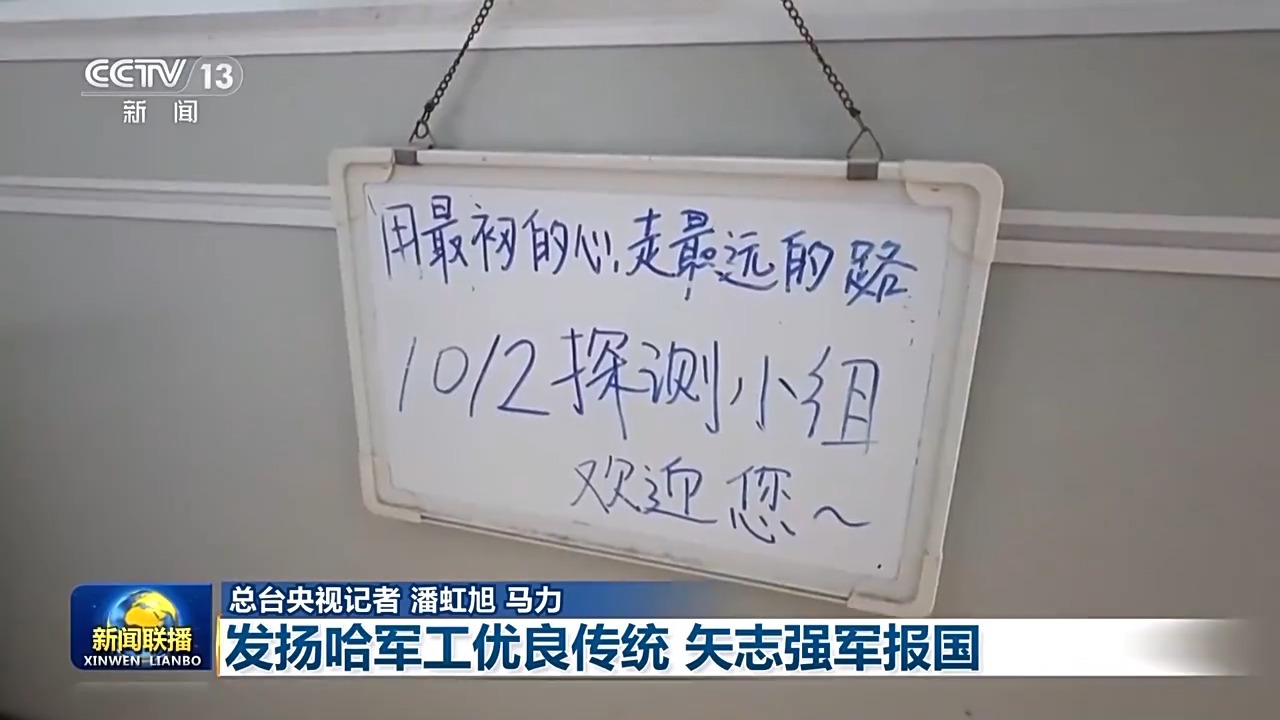 CCTV 13
新闻
用最初的心,走最远的路
1012探测小组
欢迎您~
总台央视记者 潘虹旭 马力
新闻联播
XINWEN LIANBO
发扬哈军工优良传统 矢志强军报国